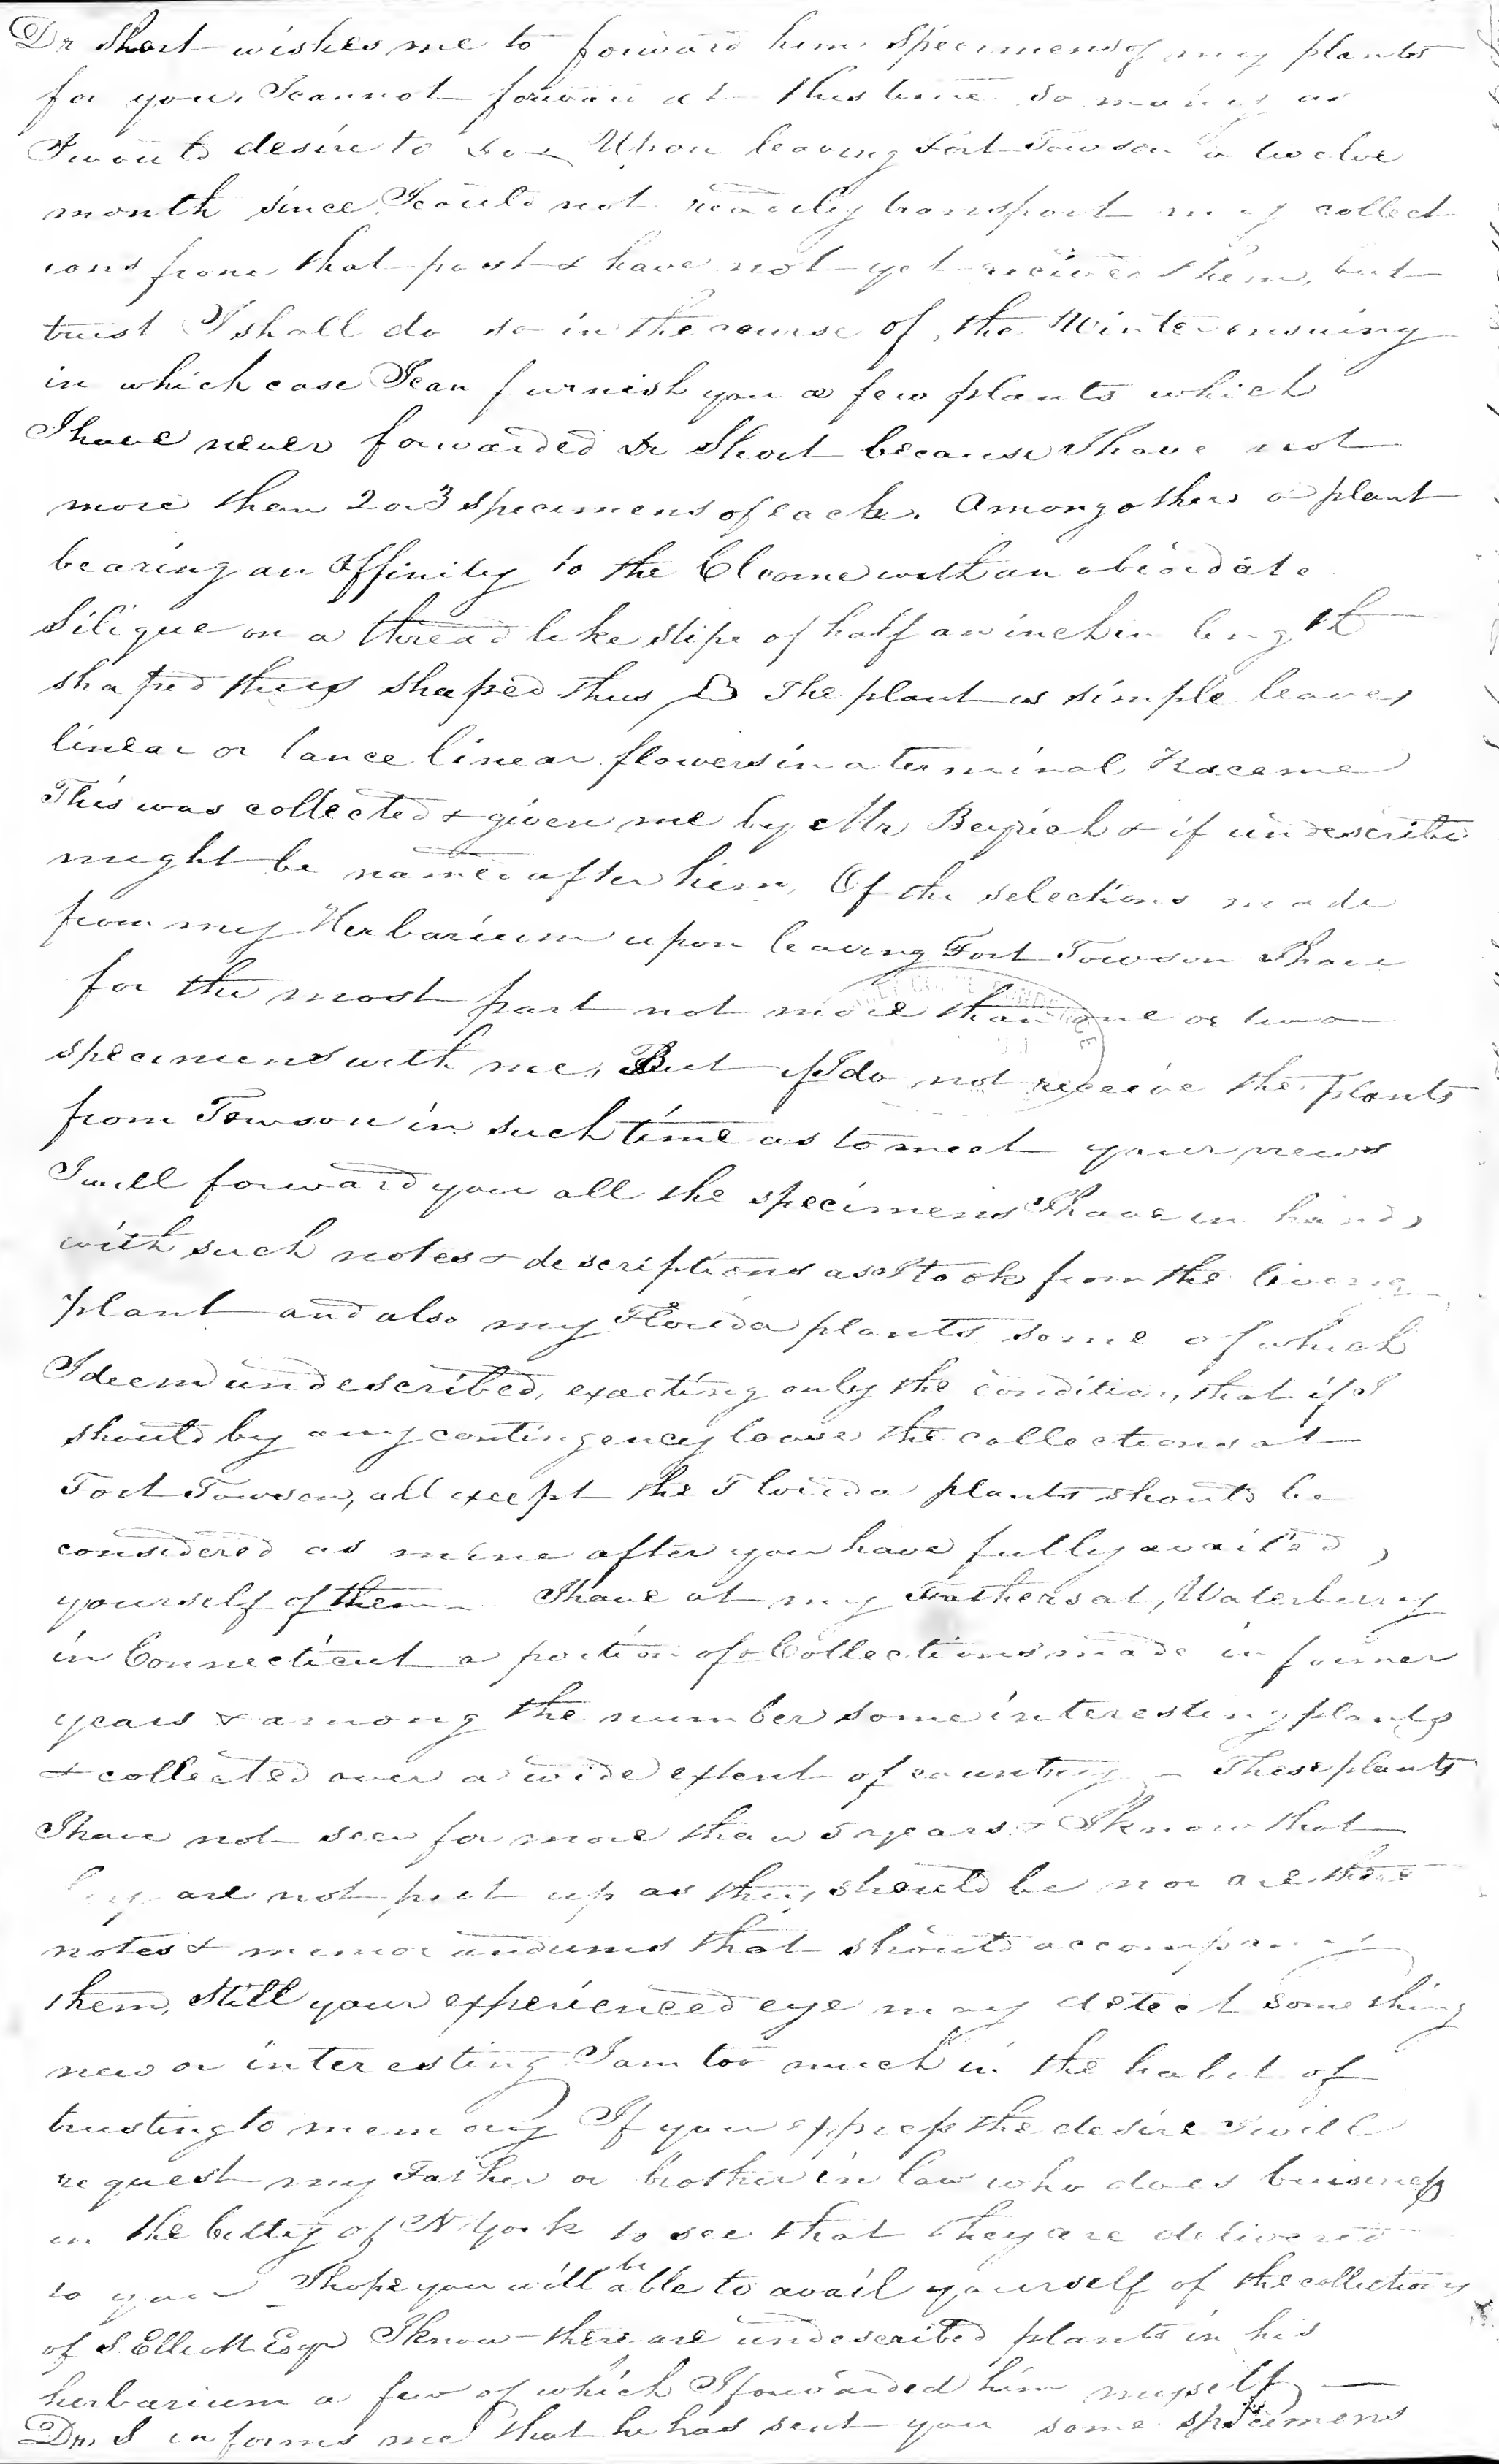 Dr Short wishes me to forward him specimens of my plants
for you. I cannot forward at this time so many as
I would desire to do – Upon leaving Fort Towson a twelve
month since I could not readily transport my collect-
ions from that post & have not yet recieved them, but
trust I shall do so in the course of the Winter ensuing
in which case I can furnish you a few plants which
I have never forwarded Dr Short because I have not
more than 2 or 3 specimens of each. Among others a plant
bearing an affinity to the Cleome with an obcordate
Silique on a thread like stipe of half an inch in length
shaped thus shaped thus The plant is simple leaves
linear or lance linear flowers in a terminal Raceme
This was collected & given me by Mr Beyrich & if undescribed
might be named after him. Of the selections made
from my Herbarium upon leaving Fort Towson I have
for the most part not more than one or two
specimens with me. But if I do not receive the plants
from Towson in such time as to meet your news
I will forward you all the specimens I have in hand,
with such notes & descriptions as I took from the living
plant and also my Florida plants some of which
I deem undescribed, exacting only the condition, that if I
should by any contingency loose the collections at
Fort Towson, all except the Florida plants should be
considered as mine after you have fully availed,
yourself of them – I have at my Fathers at, Waterbury
in Connecticut a portion of Collections made in former
years & among the number some interesting plants
& collected over a wide extent of country – These plants
I have not seen for more than 5 years. & I know that
they are not put up as they should be nor are there
notes & memorandums that should accompany
them, Still your experienced eye may detect something
new or interesting I am too much in the habit of
trusting to memory If you express the desire I will
request my Father or brother in law who does buisness
in the Citty of N York to see that they are delivered
to you – I hope you will be able to avail yourself of the collections
of S. Elliott Esqr I know there are undescribed plants in his
herbarium a few of which I forwarded him myself –
Dr. S informs me that he has sent you some specimens